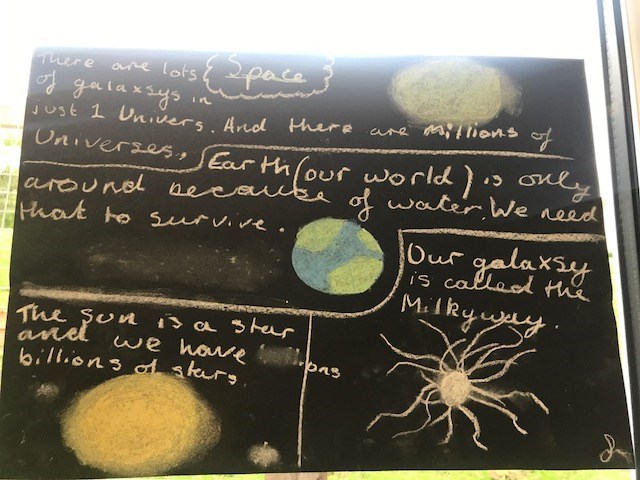 Space
There are lots
of galaxsys in
just 1 Univers. And there are millions of
Universes.
Earth (our world) is only
around because of water. We need
that to survive.
Our galaxsy
is called the
Milkyway.
The sun is a star
and we have
billions of stars